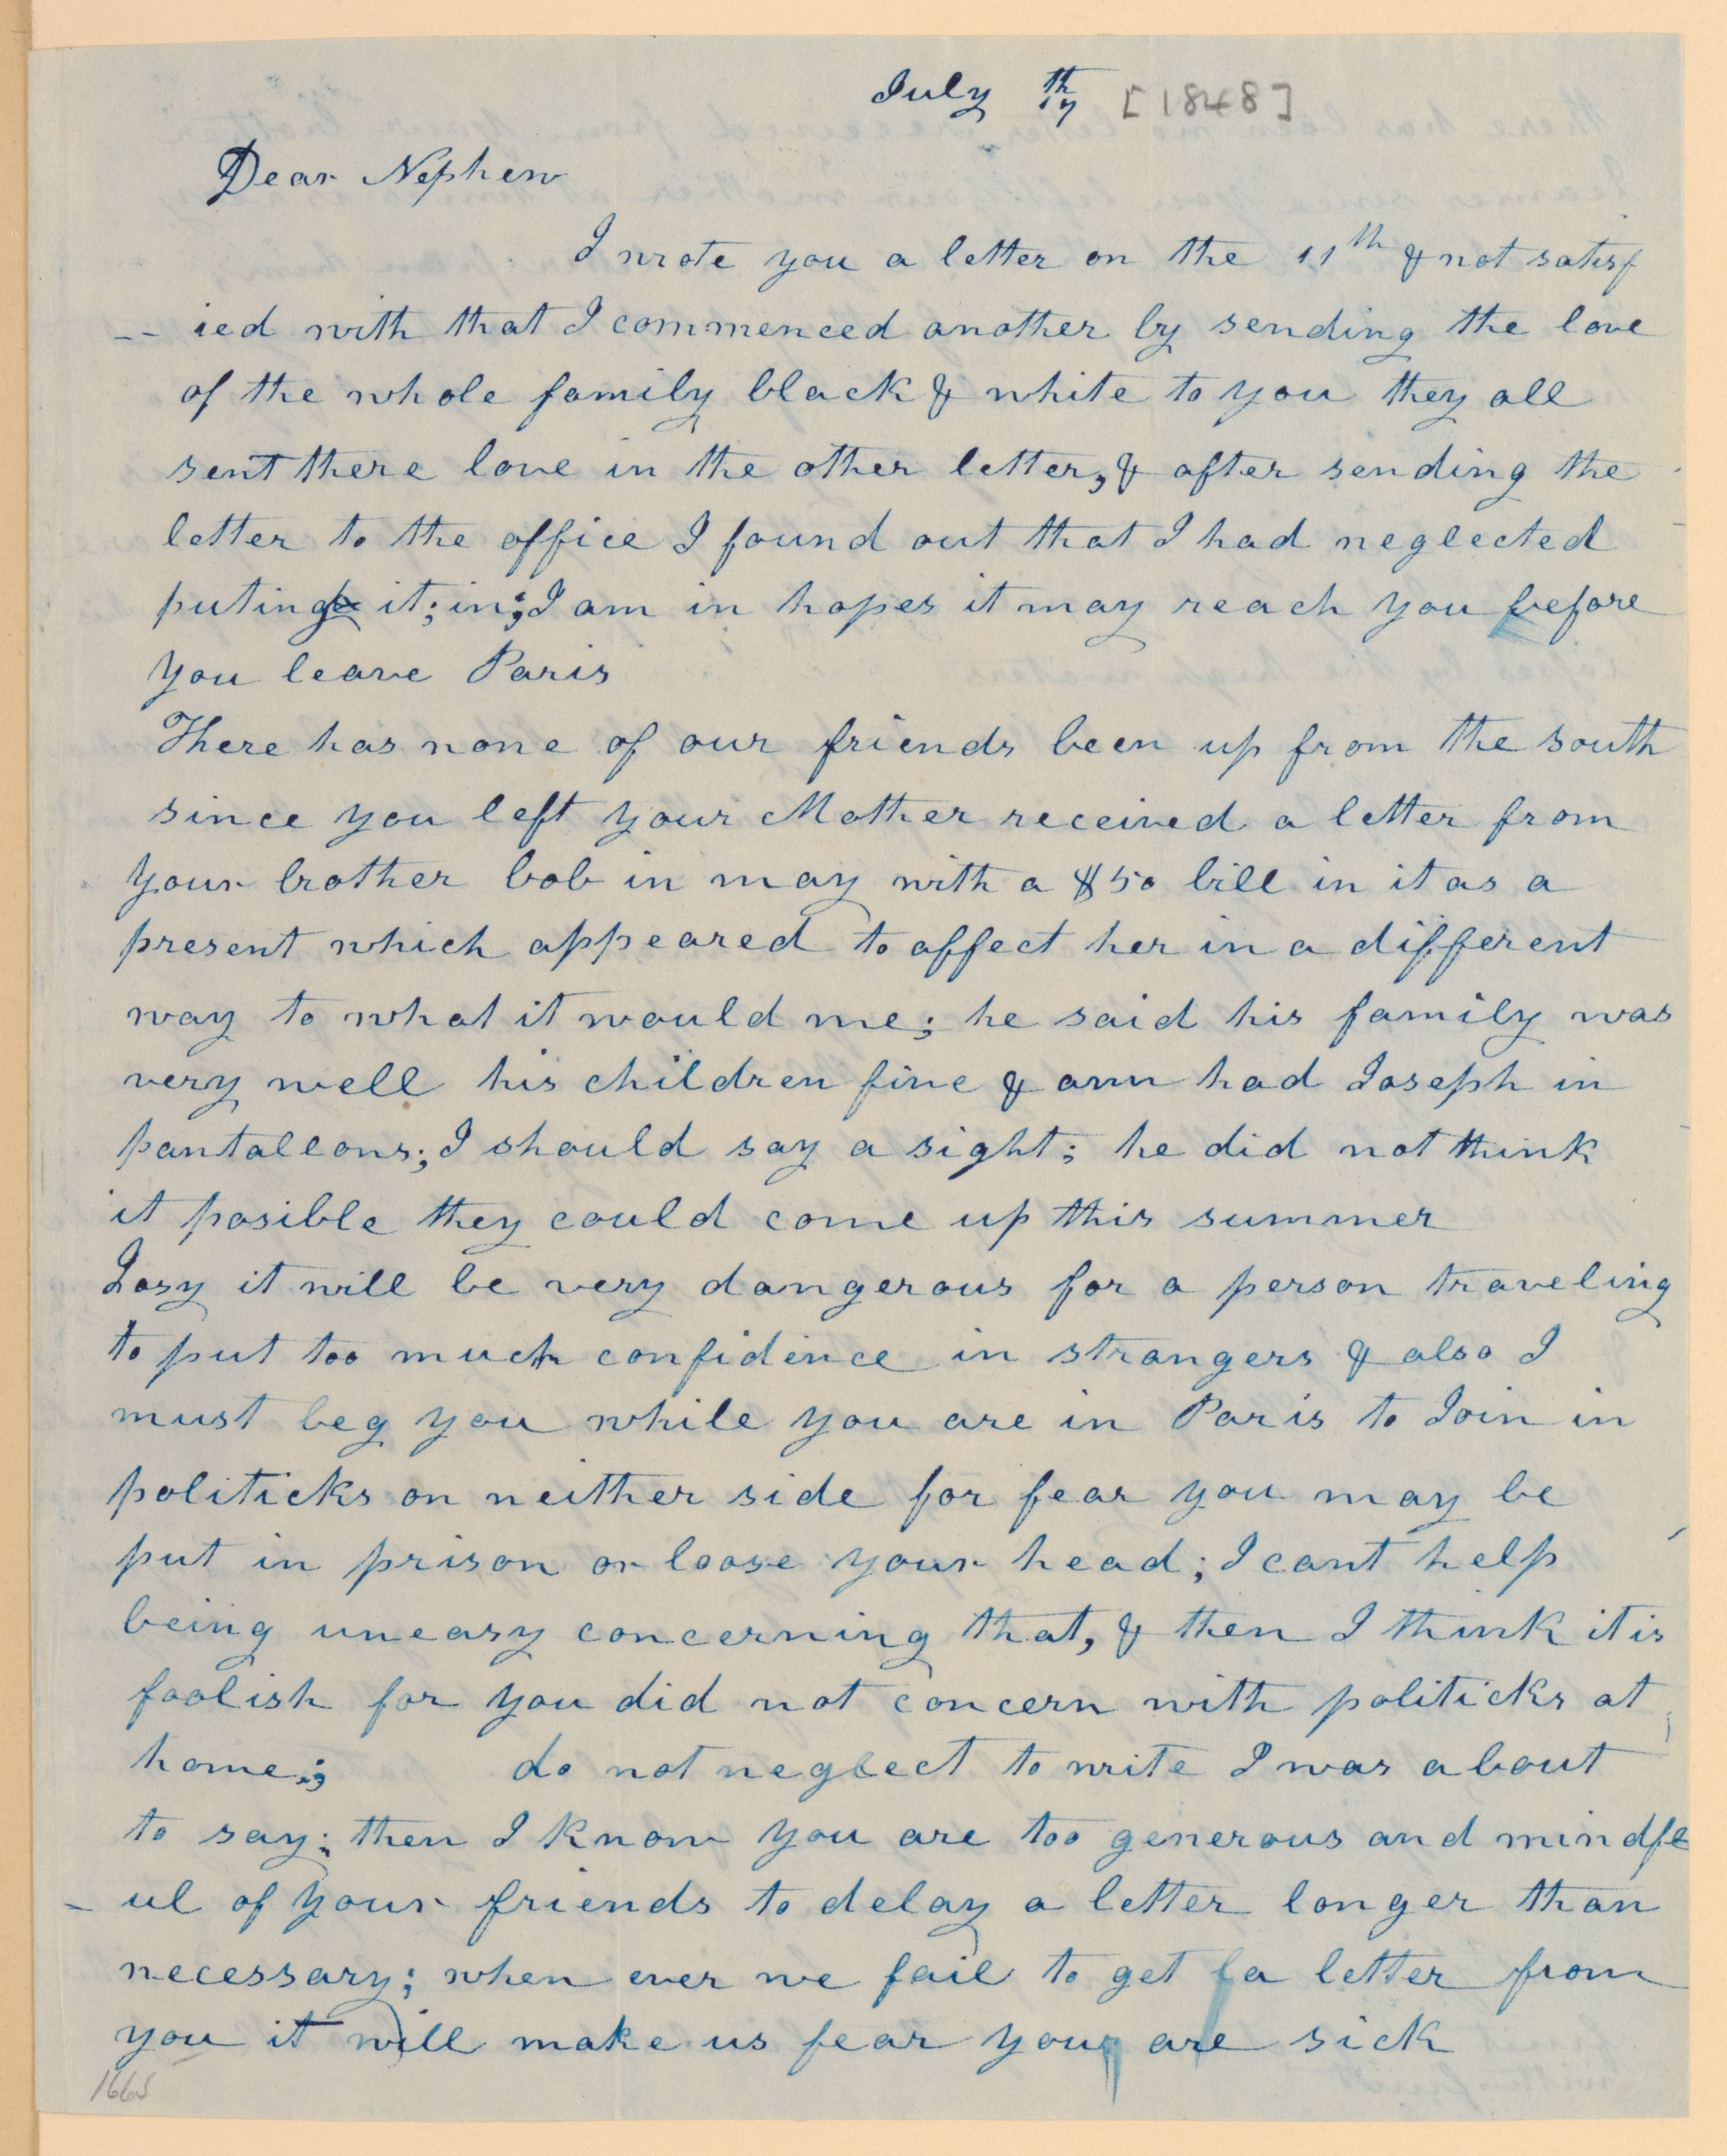 July 17th [1848]
Dear Nephew
I wrote you a letter on the 11th & not satisf
-- ied with that I commenced another by sending the love
of the whole family black & white to you they all
sent there love in the other letter, & after sending the
letter to the office I found out that I had neglected
puting it; in; I am in hopes it may reach you before
you leave Paris
There has none of our friends been up from the south
since you left your Mother received a letter from
your brother bob in may with a $50 bill in it as a
present which appeared to affect her in a different
way to what it would me; he said his family was
very well his children fine & ann had Joseph in
pantaleons; I should say a sight; he did not think
it posible they could come up this summer
Iasy it will be very dangerous for a person traveling
to put too much confidence in strangers & also I
must beg you while you are in Paris to Join in
politicks on neither side for fear you may be
put in prison or loose your head; I cant help
being uneasy concerning that, & then I think it is
foolish for you did not concern with politicks at
home; do not neglect to write I was about
to say; then I know you are too generous and mindfe
- ul of your friends to delay a letter longer than
necessary; when ever we fail to get a letter from
you it will make us fear you are sick
1665